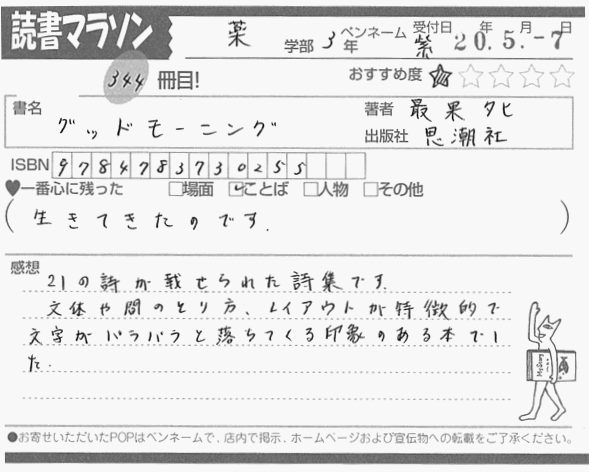 読書マラソン 薬 学部 3年 ペンネーム 紫 受付日 20.5.-7 年 月 日
344 冊目! おすすめ度 ★☆☆☆☆
書名 グッドモーニング 著者 最果タヒ
出版社 思潮社
ISBN 9784783730255
♥一番心に残った □場面 ☑ことば □人物 □その他
(生きてきたのです.)
感想
21の詩が載せられた詩集です.
文体や間のとり方、レイアウトが特徴的で
文字がパラパラと落ちてくる印象のある本でし
た.
●お寄せいただいたPOPはペンネームで、店内で掲示、ホームページおよび宣伝物への転載をご了承ください。